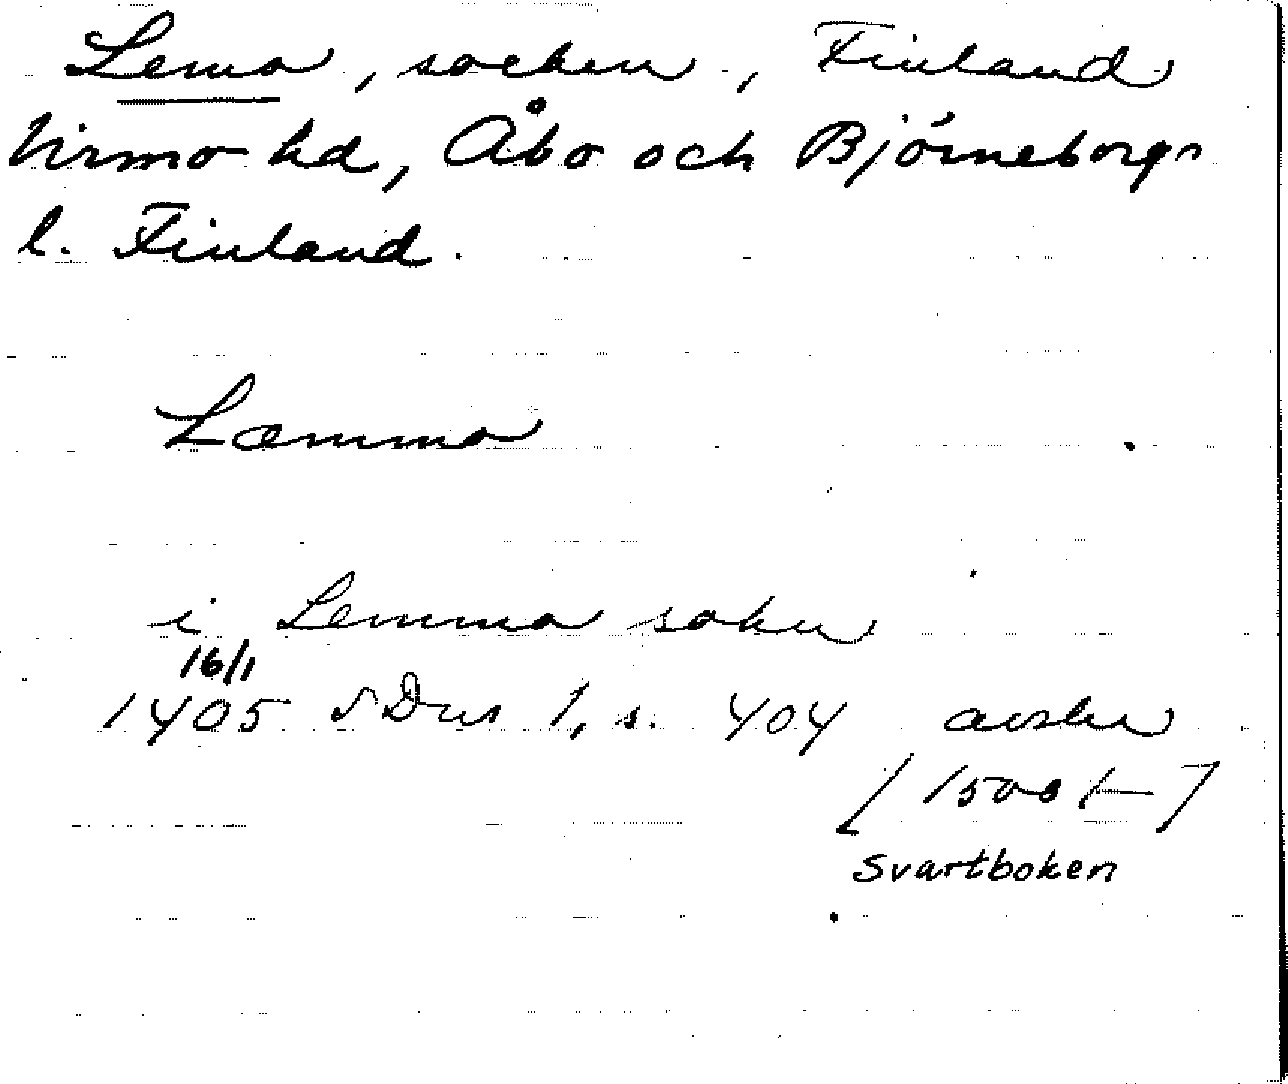 Lemo, socken, Finland
Virmo hd, Åbo och Björneborgs
l. Finland.
Lemmo
i Lemmo sokn
16/1
1405 SDns 1, s. 404 avskr
[1500 t]
Svartboken